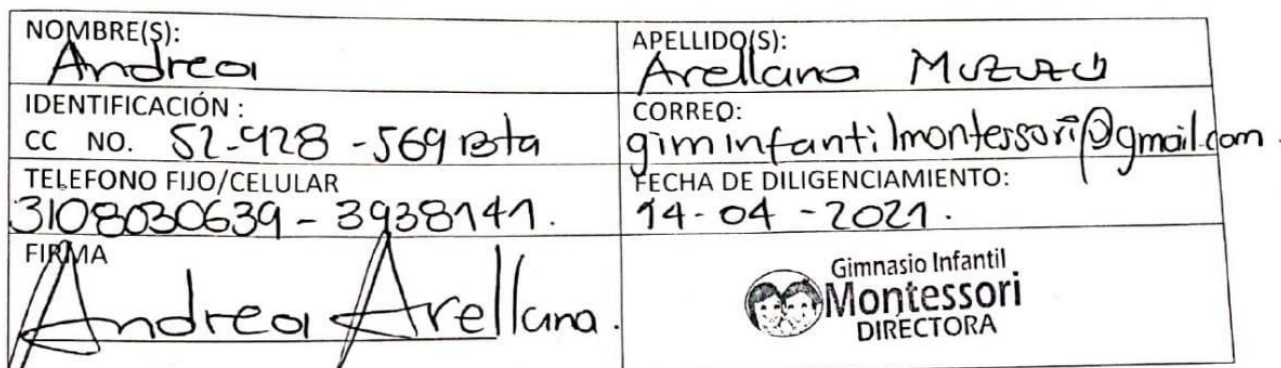 NOMBRE(S):
Andrea
APELLIDO(S):
Arellano Muzuzú
IDENTIFICACIÓN :
CC NO. 52-928-569 Bta
CORREO:
giminfantilmontessori@gmail.com.
TELEFONO FIJO/CELULAR
3108030639 - 3938141.
FECHA DE DILIGENCIAMIENTO:
14-04-2021.
FIRMA
Andrea Arellano.
Gimnasio Infantil
Montessori
DIRECTORA